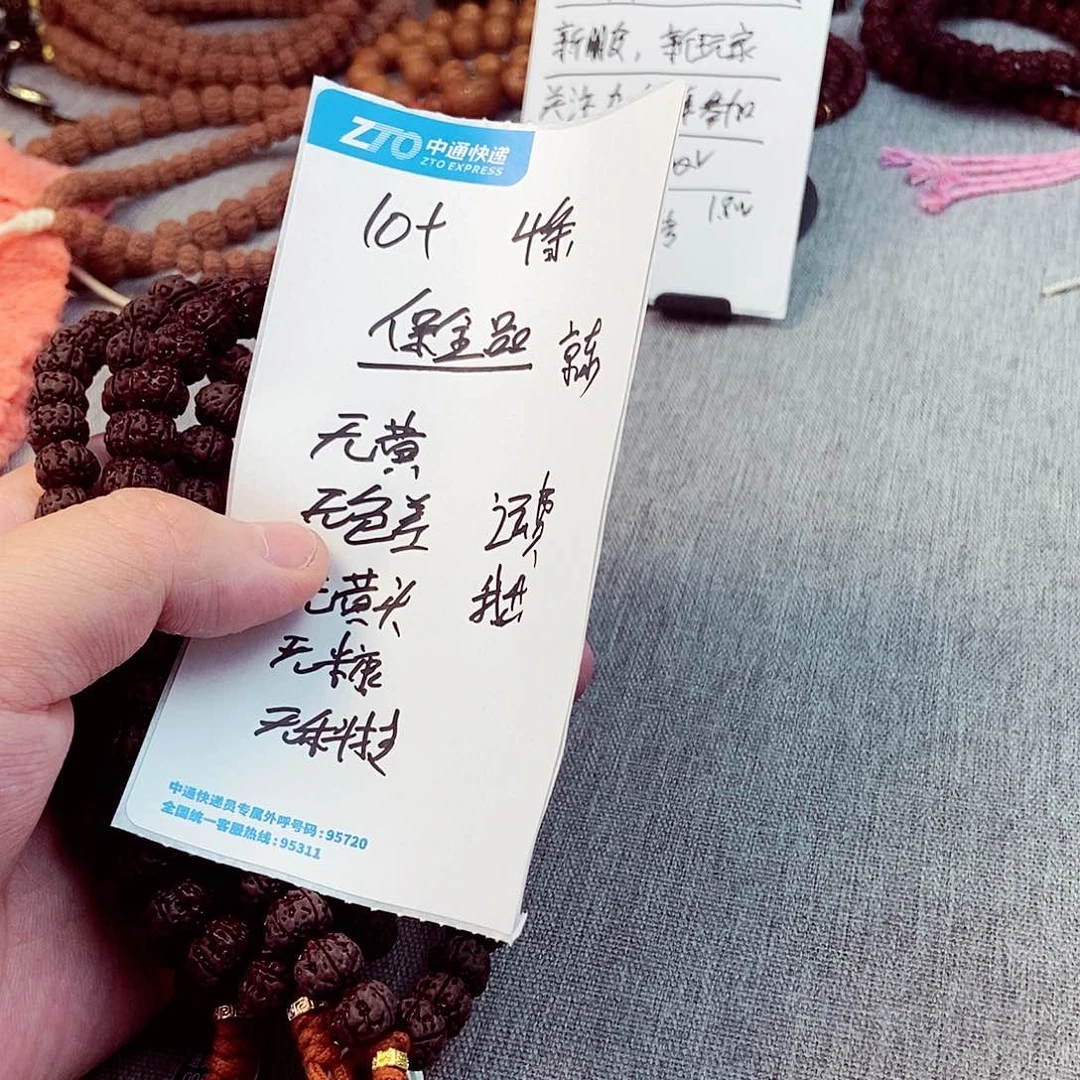 新朋友，新玩家
关注
参加
1.8w
ZTO 中通快递
ZTO EXPRESS
10+ 4条
保全品 京东
无黄
无色差 运费
无黄头 我出
无糠
无科技
中通快递员专属外呼号码：95720
全国统一客服热线：95311